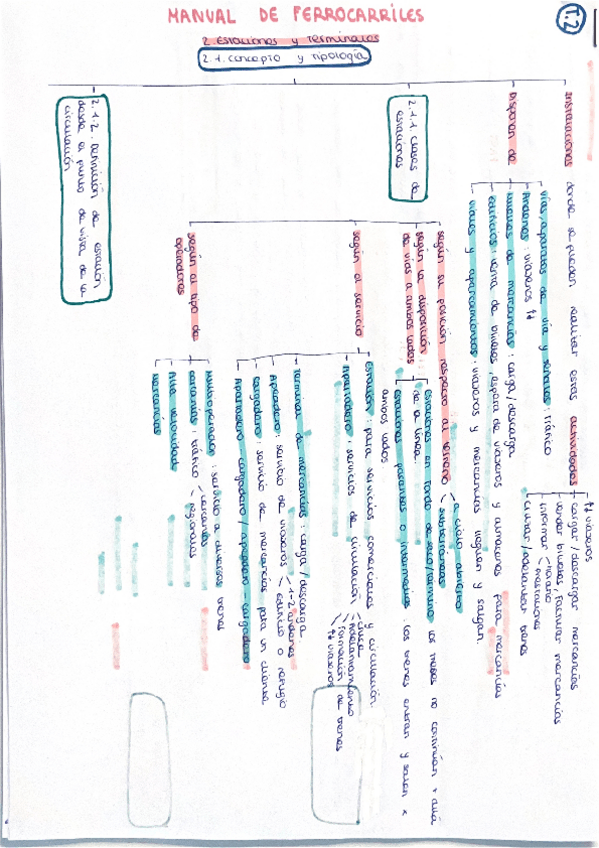 T.2
MANUAL DE FERROCARRILES
2. Estaciones y Terminales
2.1. concepto y tipología
Instalaciones donde se pueden realizar estas actividades
↑↓ viajeros
cargar/descargar mercancías
vender billetes, facturar mercancías
informar
horario
cruzar/adelantar trenes
Disponen de
vías, aparatos de vía y señales: tráfico
Andenes: viajeros ↑↓
muelles de mercancías: carga/descarga
Edificios: venta de billetes, espera de viajeros y almacenes para mercancías
viales y aparcamientos: viajeros y mercancías lleguen y salgan.
2.1.1. clases de
estaciones
según su posición respecto al terreno
a cielo abierto
subterráneas
según la disposición
de vías a ambos lados
Estaciones en fondo de saco/término: las mismas no continúan + allá
de a línea.
Estaciones pasantes o intermedias: los trenes entran y salen x
ambos lados
según el servicio
Estación: para servicios comerciales y circulación.
Apartadero: servicios de circulación
cruce
Adelantamiento
Formación de trenes
↑↓ viajeros
Terminal de mercancías: carga/descarga
Apeadero: servicio de viajeros
1-2 andenes
edificio o refugio
cargadero: servicio de mercancías para un cliente
Apartadero-cargadero/apeadero-cargadero
según el tipo de
operadores
Multioperación: servicio a diversos trenes
cercanías: tráfico
cercanías
regionales
Alta velocidad
Mercancías
2.1.2. Definición de estación
desde el punto de vista de la
circulación